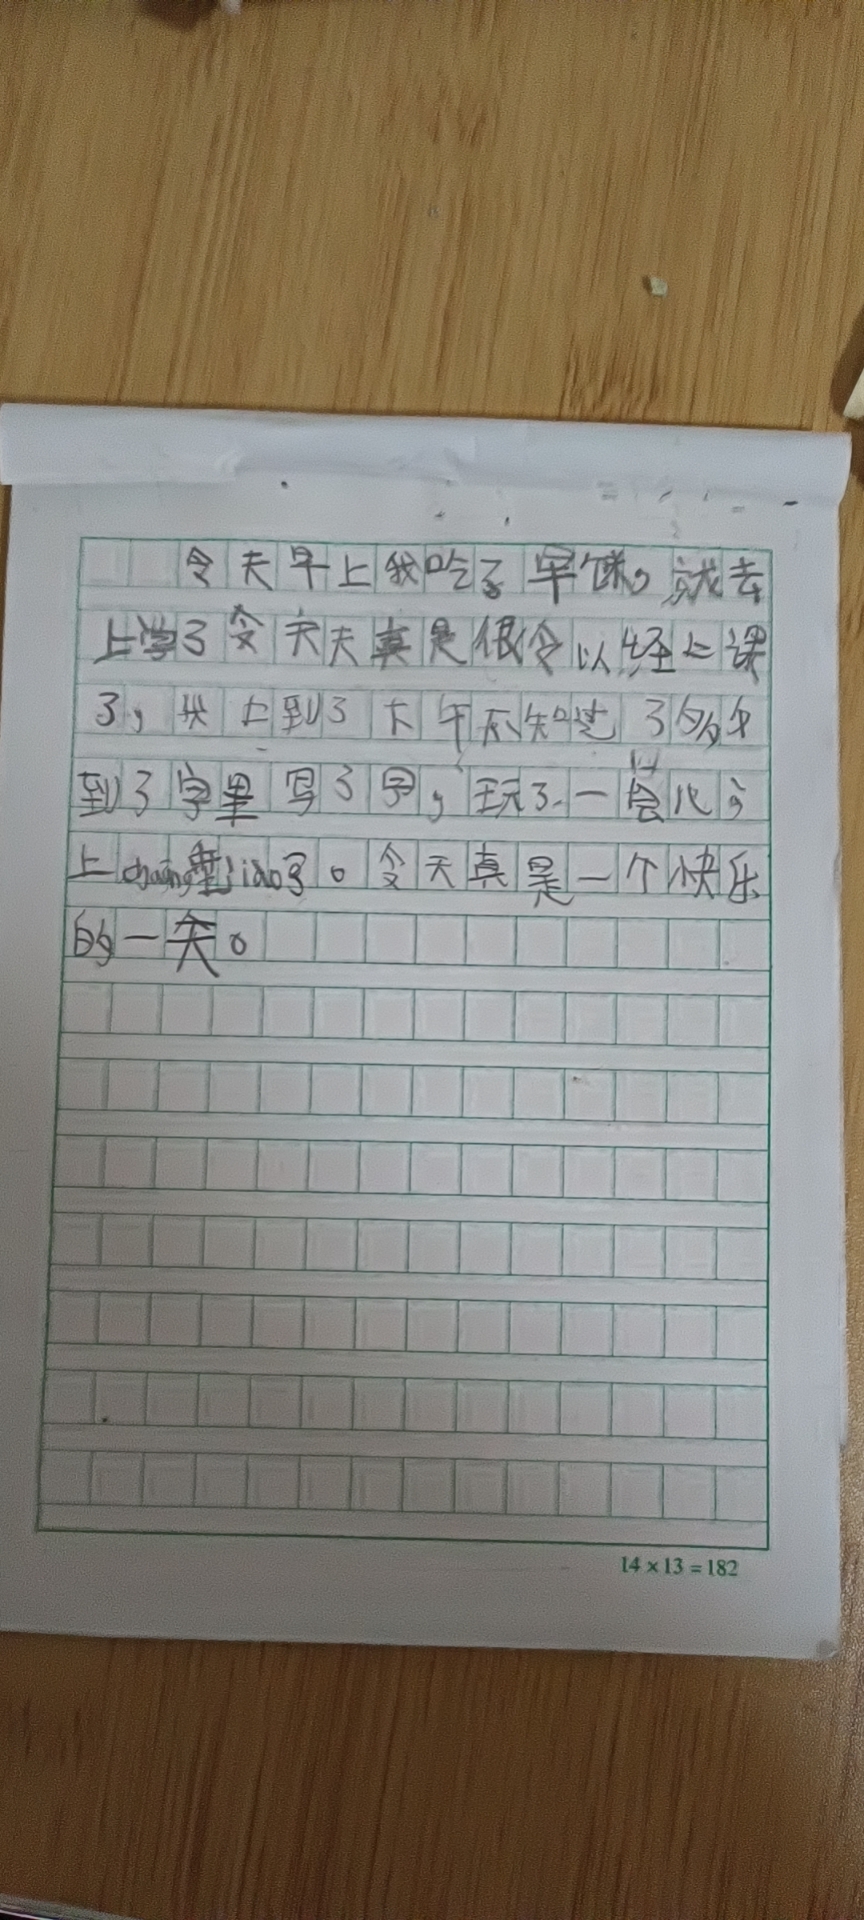 今天早上我吃了早饭，就去
上学了今天天真是很冷以经上课
了，上到了下午不知过了多久
到了字里写了字，玩了一会儿
上chuáng jiào了。今天真是一个快乐
的一天。
14×13=182